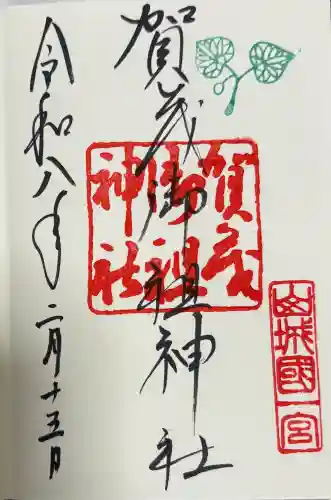 山城國一宮
賀茂御祖神社
賀茂御祖神社
令和八年二月十三日